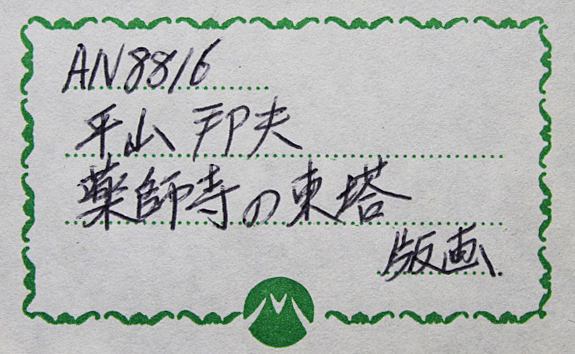 AN8816
平山 邦夫
薬師寺の東塔
版画